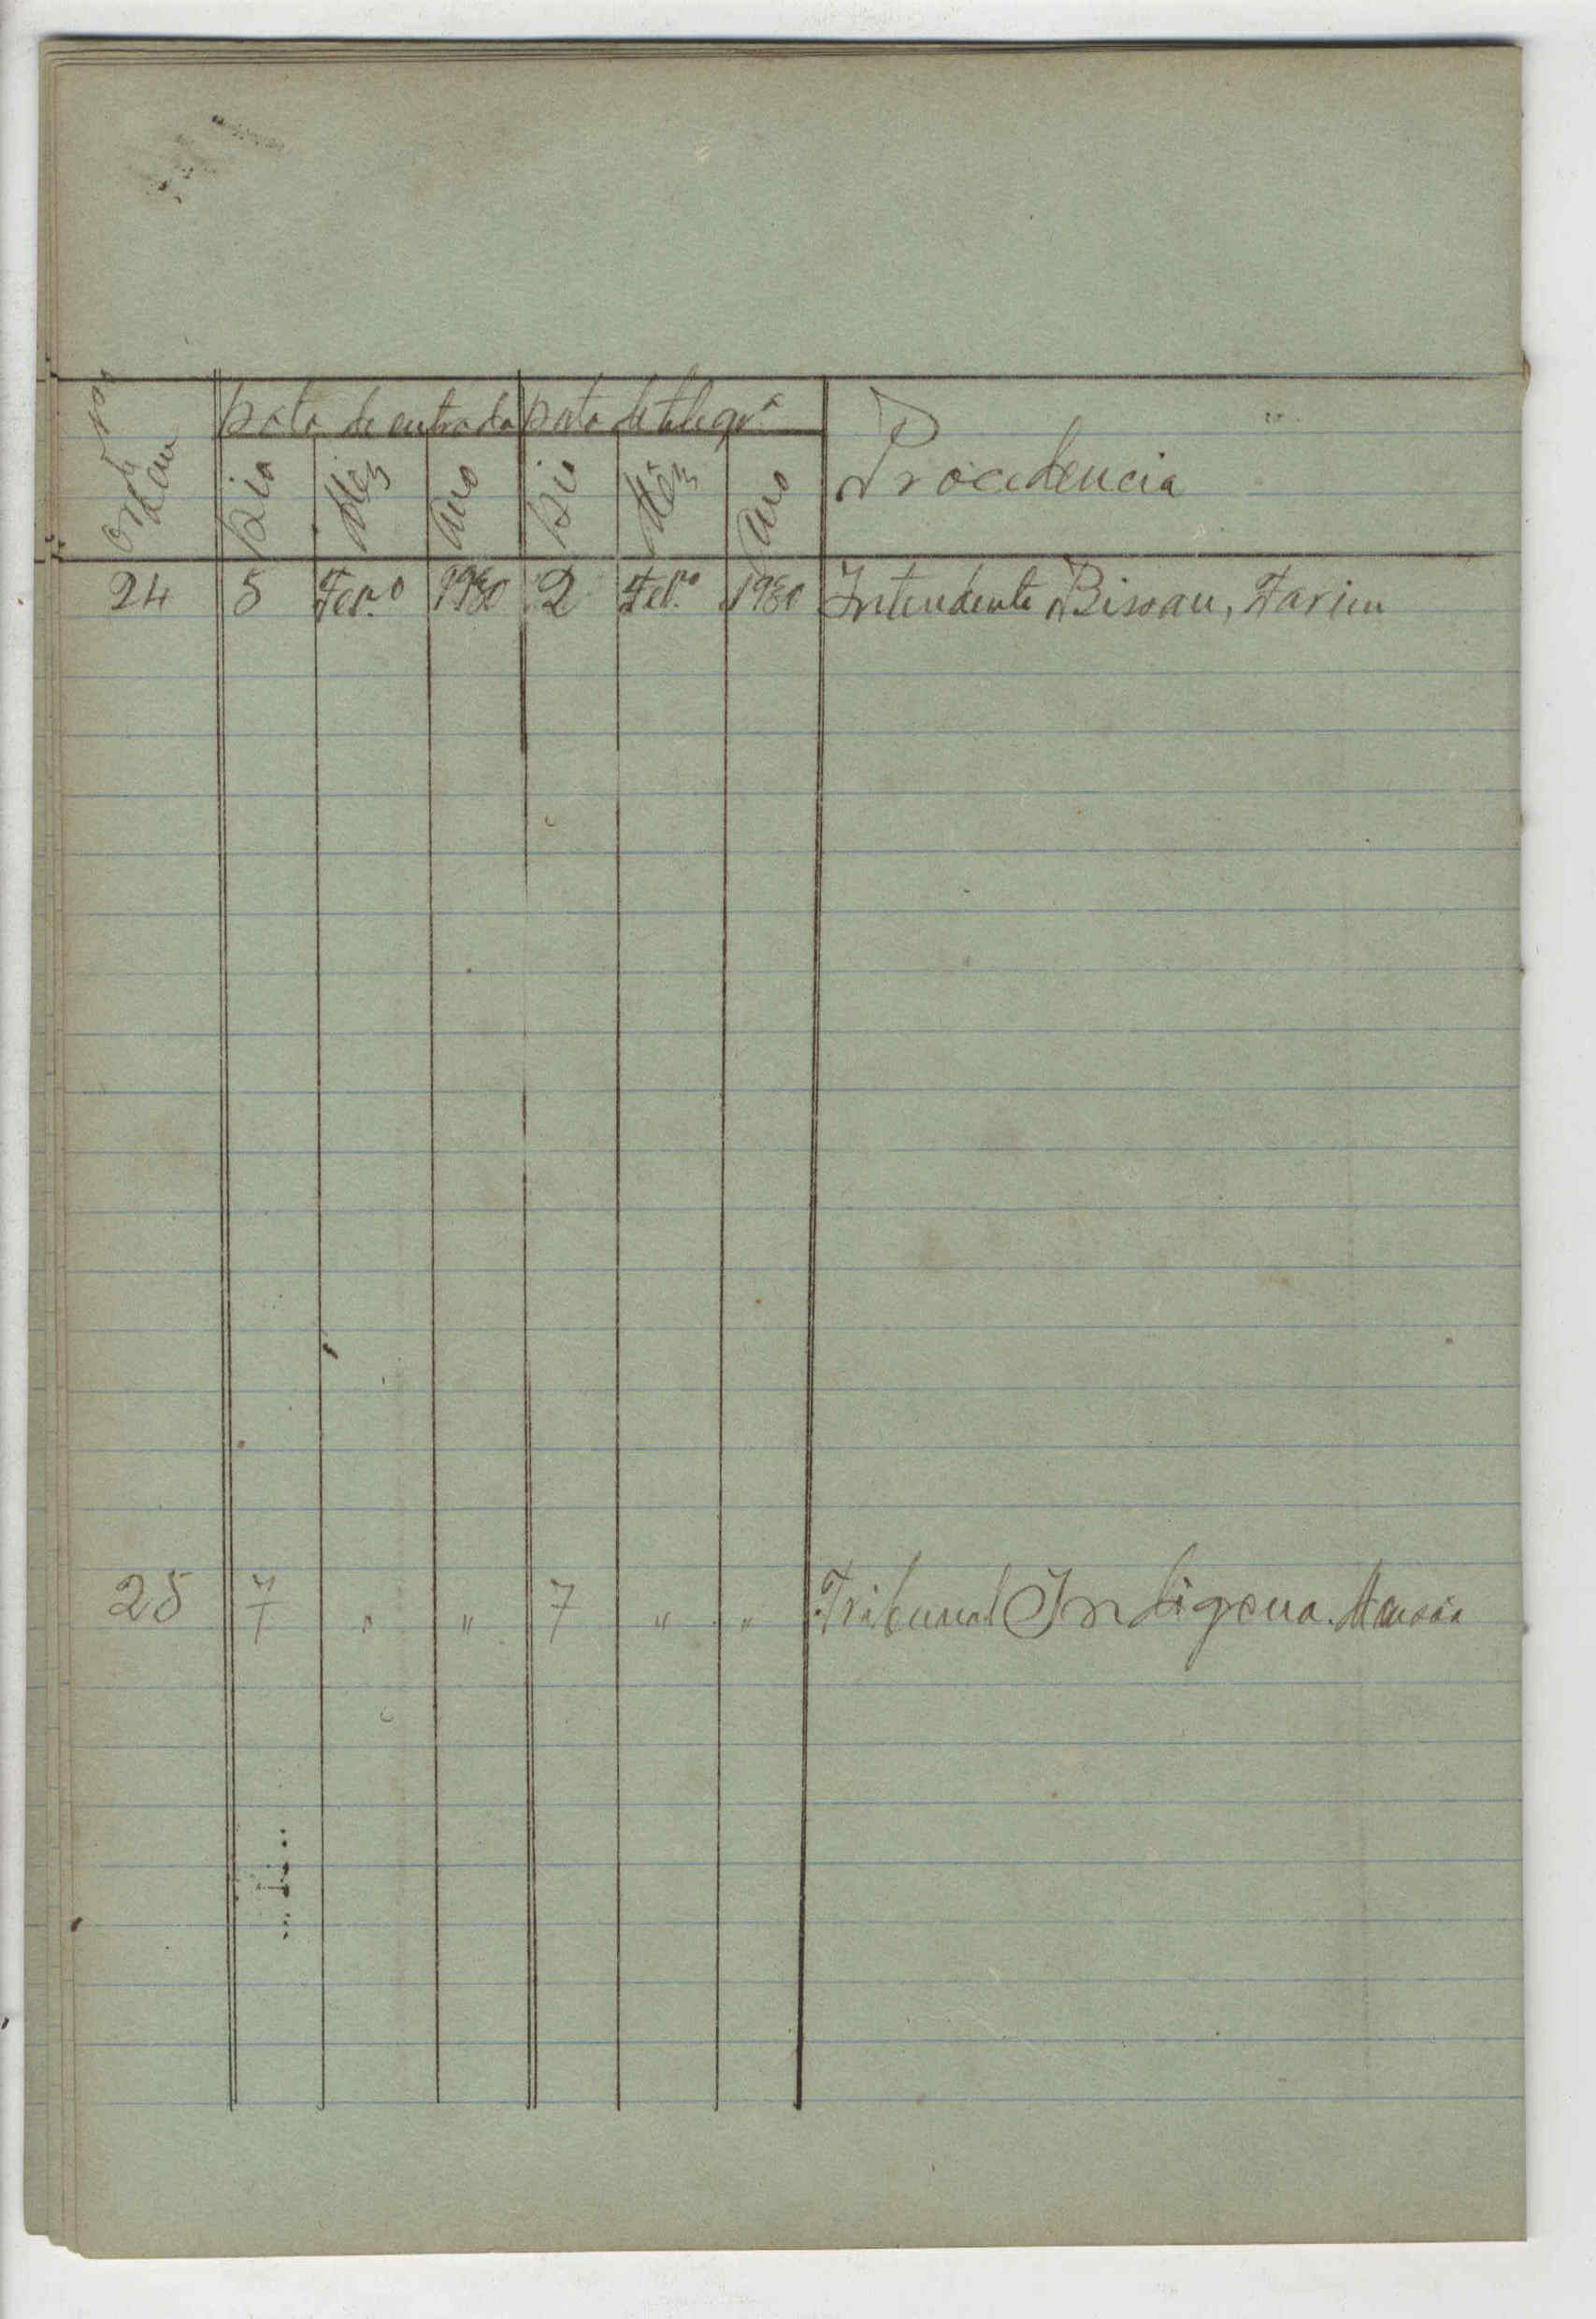 Nº de Ordem
Data de entrada Data de telegrª
Dia Mês Ano Dia Mês Ano Procedencia
24 5 Fevº 1950 2 Fevº 1950 Intendente Bissau, Farim
25 7 " " 7 " " Tribunal Indigena. Mansôa